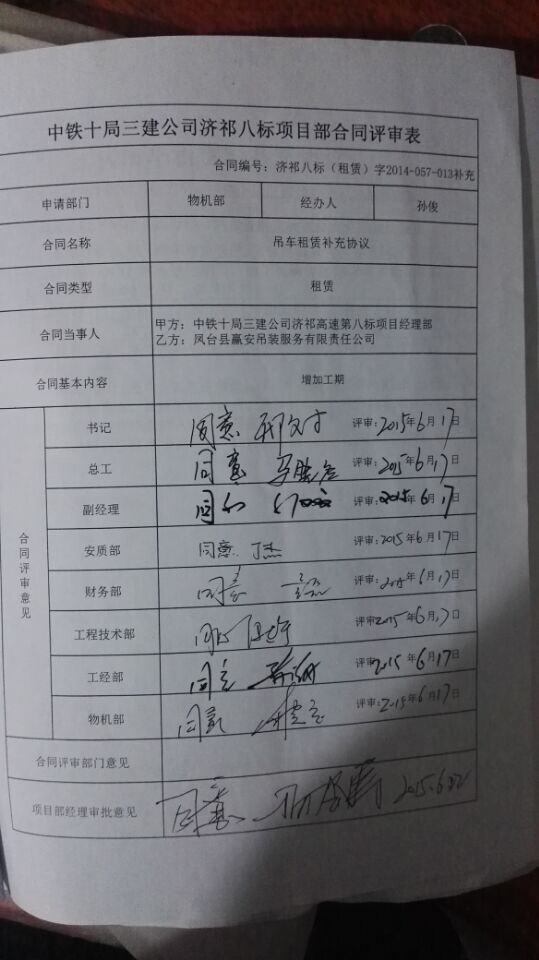 中铁十局三建公司济祁八标项目部合同评审表
合同编号：济祁八标（租赁）字2014-057-013补充
申请部门 物机部 经办人 孙俊
合同名称 吊车租赁补充协议
合同类型 租赁
合同当事人 甲方：中铁十局三建公司济祁高速第八标项目经理部
乙方：凤台县赢安吊装服务有限责任公司
合同基本内容 增加工期
合同评审意见
书记 同意 评审：2015年6月17日
总工 同意 评审：2015年6月17日
副经理 同意 评审：2015年6月17日
安质部 同意 丁杰 评审：2015年6月17日
财务部 同意 评审：2015年6月17日
工程技术部 同意 评审2015年6月17日
工经部 同意 评审：2015年6月17日
物机部 同意 评审：2015年6月17日
合同评审部门意见
项目部经理审批意见 同意 2015.6.22